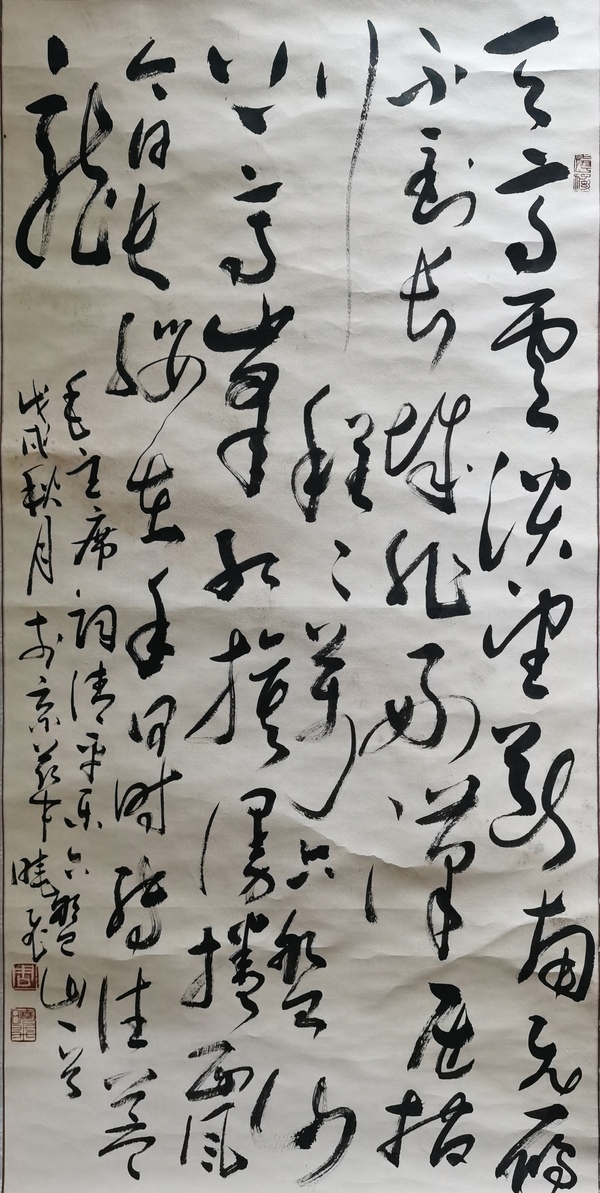 天高雲淡望斷南飞雁
不到长城非好漢屈指
行程二萬六盤山
上高峯红旗漫捲西風
今日长缨在手何时缚住蒼
龍
毛主席词清平乐六盤山一首
戊戌秋月於京華